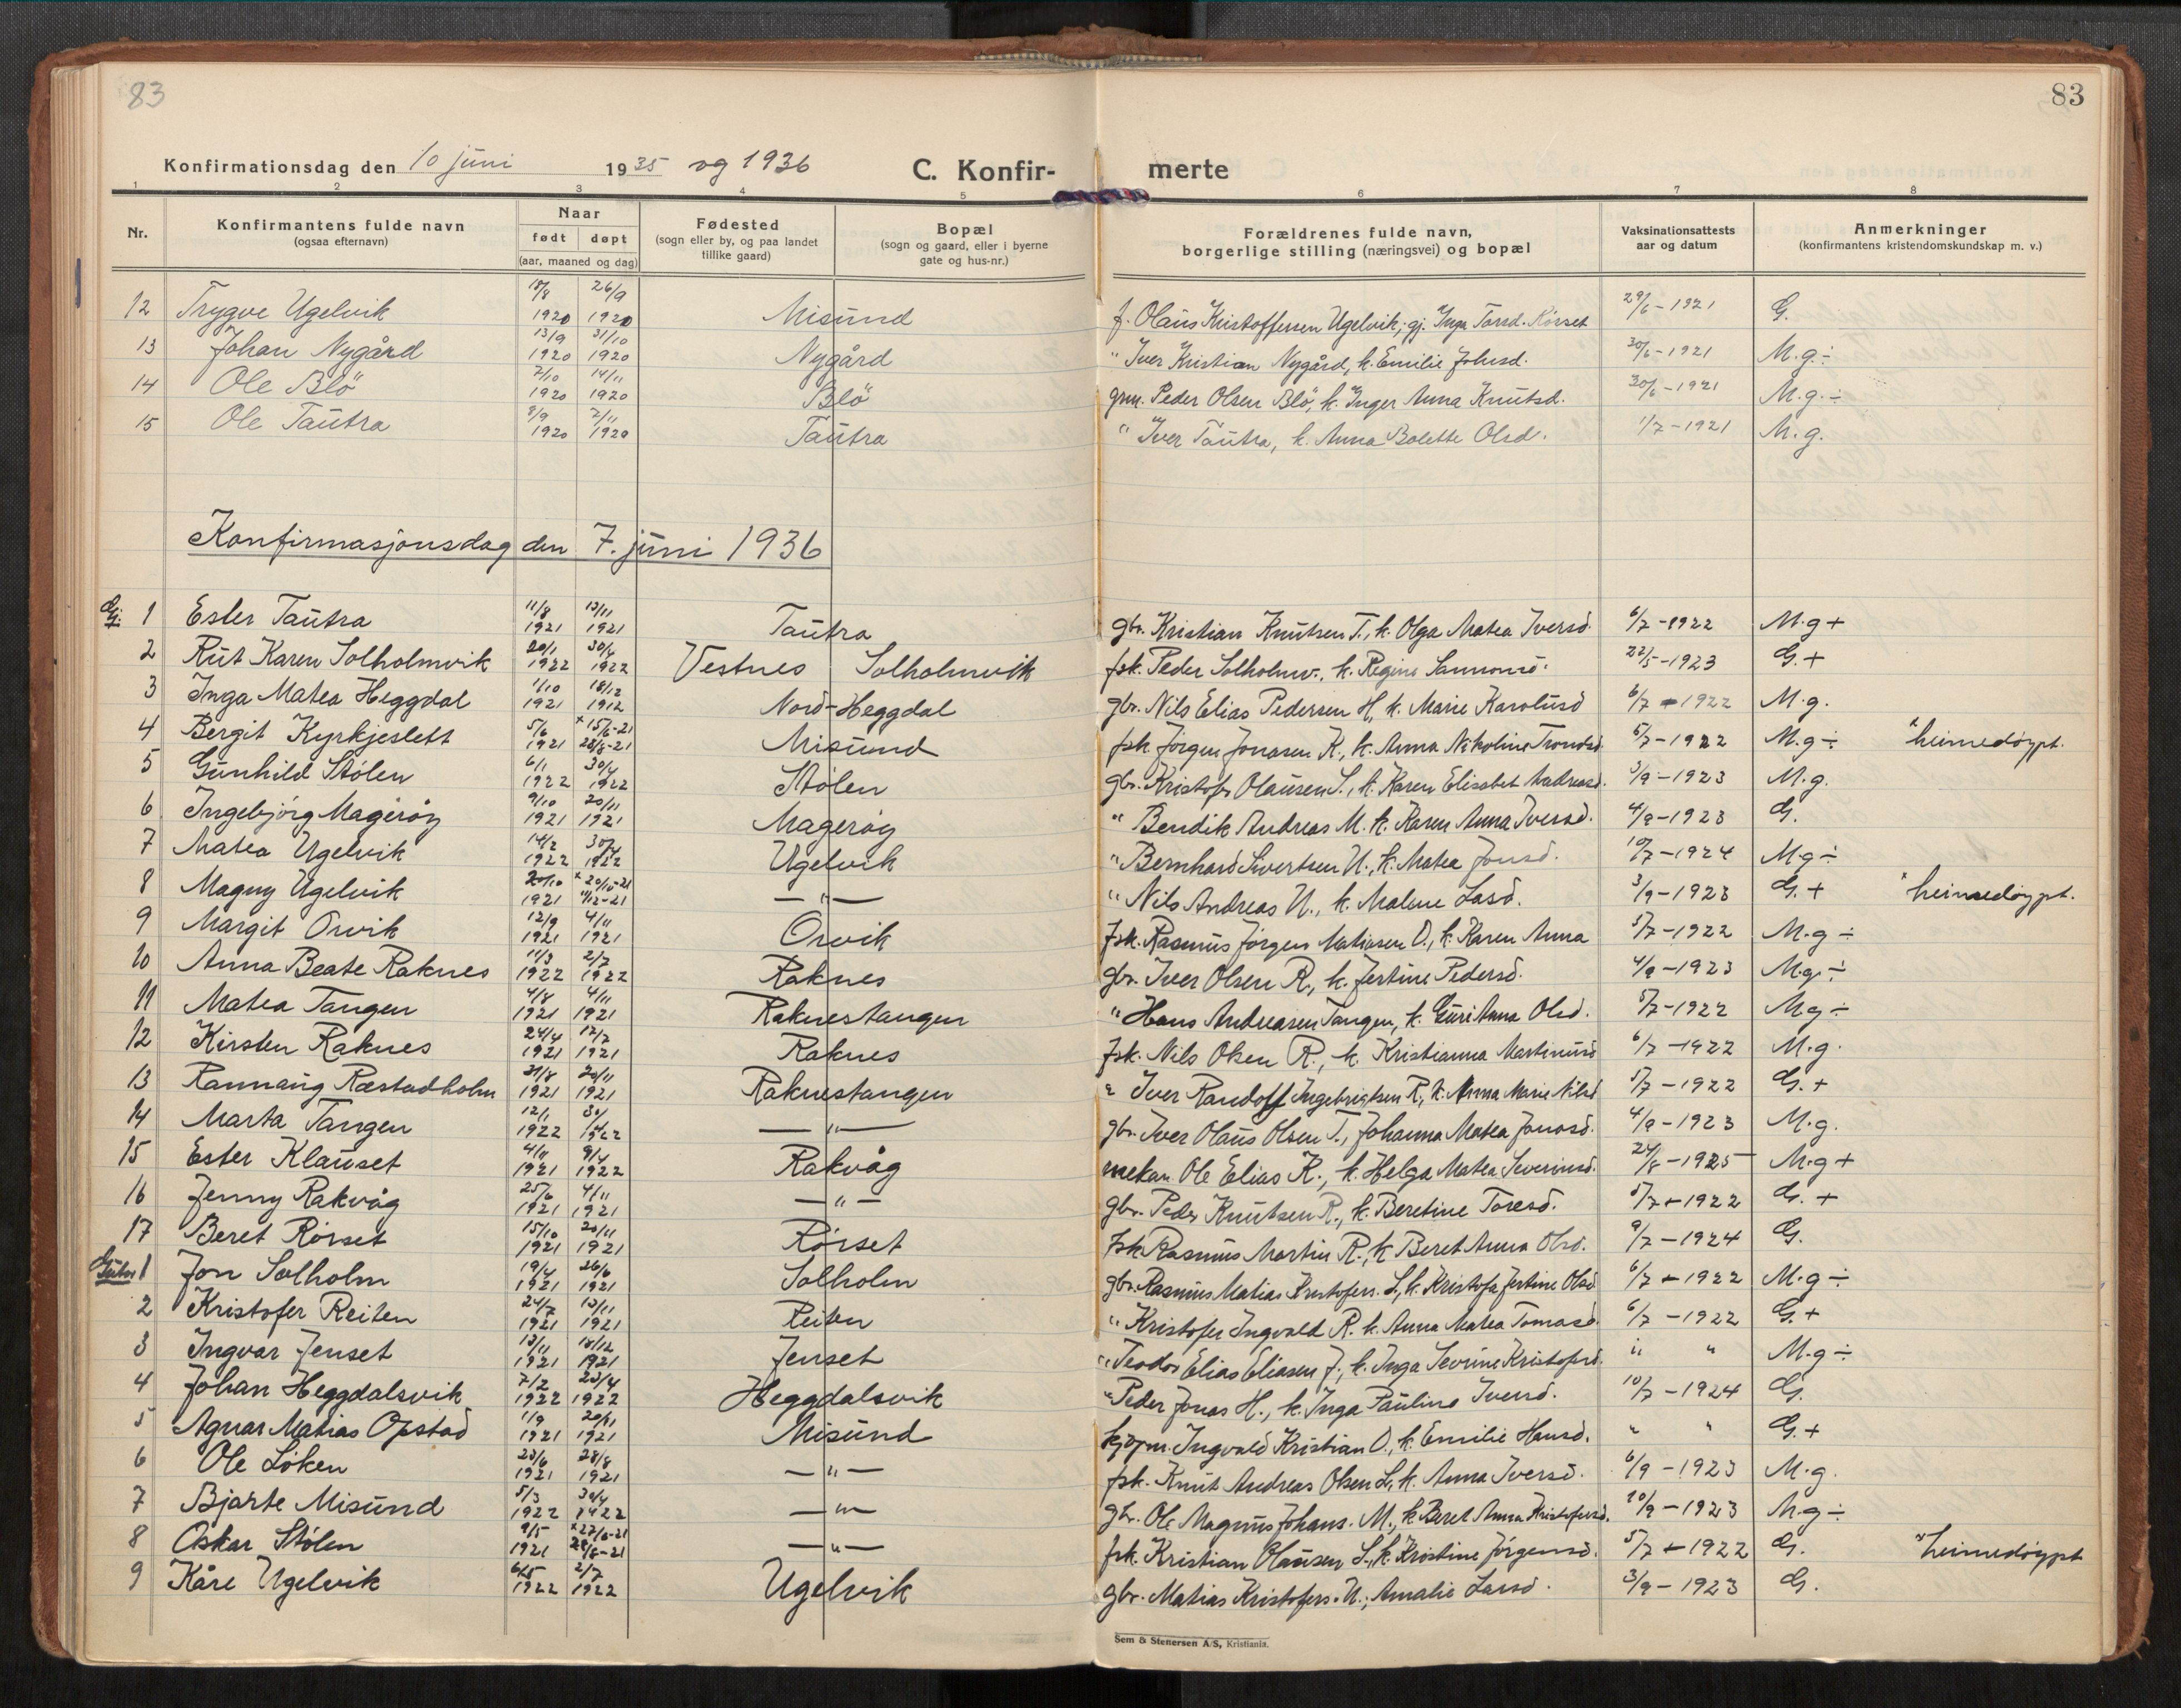 83
83
Konfirmationsdag den 10 juni 1935 og 1936 C. Konfir- merte
1 2 3 4 5 6 7 8
Nr. Konfirmantens fulde navn (ogsaa efternavn) Naar født døpt (aar, maaned og dag) Fødested (sogn eller by, og paa landet tillike gaard) Bopæl (sogn og gaard, eller i byerne gate og hus-nr.) Forældrenes fulde navn, borgerlige stilling (næringsvei) og bopæl Vaksinationsattests aar og datum Anmerkninger (konfirmantens kristendomskundskap m. v.)
12 Trygve Ugelvik 18/8 1920 26/9 1920 Misund f. Olaus Kristoffersen Ugelvik, gj. Inga Torsd. Rörset 29/6-1921 G.
13 Johan Nygård 13/9 1920 31/10 1920 Nygård " Iver Kristian Nygård, k. Emilie Johnsd. 30/6-1921 M.g.÷
14 Ole Blö 7/10 1920 14/11 1920 Blö grm. Peder Olsen Blö, k. Inger Anna Knutsd. 30/6-1921 M.g.÷
15 Ole Tautra 8/9 1920 7/11 1920 Tautra " Iver Tautra, k. Anna Bolette Olsd. 1/7-1921 M.g.
Konfirmasjonsdag den 7. juni 1936
Gj. 1 Ester Tautra 11/8 1921 13/11 1921 Tautra gbr. Kristian Knutsen T., k. Olga Matea Iversd. 6/7-1922 M.g+
2 Rut Karen Solholmvik 20/1 1922 30/4 1922 Vestnes Solholmvik fsk. Peder Solholmv., k. Regine 22/5-1923 G.+
3 Inga Matea Heggdal 1/10 1921 18/12 1912 Nord-Heggdal gbr. Nils Elias Pedersen H, k. Marie Karolusd 6/7-1922 M.g.
4 Bergit Kyrkjeslett 5/6 1921 x15/6-21 28/8-21 Misund fsk Jörgen Jonasen K, k. Anna Nikoline Trondsd. 5/7-1922 M.g÷ x heimedöypt.
5 Gunhild Stölen 6/1 1922 30/4 1922 Stölen gbr. Kristofer Olausen S., k. Karen Elisabet Andreasd. 3/9-1923 M.g.
6 Ingebjörg Mageröy 9/10 1921 20/11 1921 Mageröy " Bendik Andreas M. k. Karen Anna Iversd. 4/9-1923 G.
7 Matea Ugelvik 14/2 1922 30/4 1922 Ugelvik " Bernhard Sivertsen U., k. Matea Jonsd. 10/7-1924 M.g÷
8 Magny Ugelvik 20/10 1921 x20/10-21 11/12-21 —"— " Nils Andreas U., k. Malene Lasd. 3/9-1923 G.+ x heimedöypt.
9 Margit Orvik 12/9 1921 4/11 1921 Orvik fsk. Rasmus Jörgen Matiasen O., k. Karen Anna 5/7-1922 M.g÷
10 Anna Beate Raknes 11/3 1922 2/7 1922 Raknes gbr. Iver Olsen R., k. Jertine Pedersd. 4/9-1923 M.g.÷
11 Matea Tangen 4/8 1921 4/11 1921 Raknestangen " Hans Andreasen Tangen, k. Guri Anna Olsd. 5/7-1922 M.g÷
12 Kirsten Raknes 24/4 1921 17/7 1921 Raknes fsk. Nils Olsen R., k. Kristianna Martinusd 6/7-1922 M.g.
13 Rannaug Ræstadholm 21/8 1921 20/11 1921 Raknestangen " Iver Randolf Ingebrigtsen R, k. Anna Marie Nilsd 5/7-1922 G.+
14 Marta Tangen 12/1 1922 30/4 1922 —"— gbr. Iver Olaus Olsen T., Johanna Matea Jonasd. 4/9-1923 M.g.
15 Ester Klauset 4/11 1921 9/4 1922 Rakvåg mekan. Ole Elias K., k. Helga Matea Severinsd. 24/8-1925 M.g+
16 Jenny Rakvåg 25/6 1921 4/11 1921 —"— gbr. Peder Knutsen R., k. Beretine Toresd. 5/7-1922 G.+
17 Beret Rörset 15/10 1921 20/11 1921 Rörset fsk Rasmus Martin R., k Beret Anna Olsd. 9/7-1924 G.
Gutar 1 Jon Solholm 19/4 1921 26/6 1921 Solholm gbr. Rasmus Matias Kristofers. S., k. Kristofa Jertine Olsd 6/7-1922 M.g÷
2 Kristofer Reiten 24/7 1921 13/11 1921 Reiten " Kristofer Ingvald R. k. Anna Matea Tomasd. 6/7-1922 G.+
3 Ingvar Jenset 13/11 1921 18/12 1921 Jenset " Teodor Elias Eliasen J., k. Inga Severine Kristofersd. " " M.g÷
4 Johan Heggdalsvik 7/2 1922 23/4 1922 Heggdalsvik " Peder Jonas H., k. Inga Pauline Iversd. 10/7-1924 G.
5 Agnar Matias Opstad 1/9 1921 20/11 1921 Misund kjöpm. Ingvald Kristian O., k. Emilie Hansd. " " G.+
6 Ole Löken 23/6 1921 28/8 1921 —"— fsk. Knut Andreas Olsen L, k. Anna Iversd. 6/9-1923 M.g.
7 Bjarte Misund 5/3 1922 30/4 1922 —"— gbr. Ole Magnus Johans. M., k Beret Anna Kristofersd. 20/9-1923 M.g÷
8 Oskar Stölen 9/5 1921 x27/6-21 28/8-21 —"— fsk. Kristian Olausen S., k. Kristine Jörgensd. 5/7-1922 G. x heimedöypt
9 Kåre Ugelvik 6/5 1922 2/7 1922 Ugelvik gbr. Matias Kristofers. U., Amalie Larsd. 3/9-1923 G.
Sem & Stenersen A/S, Kristiania.